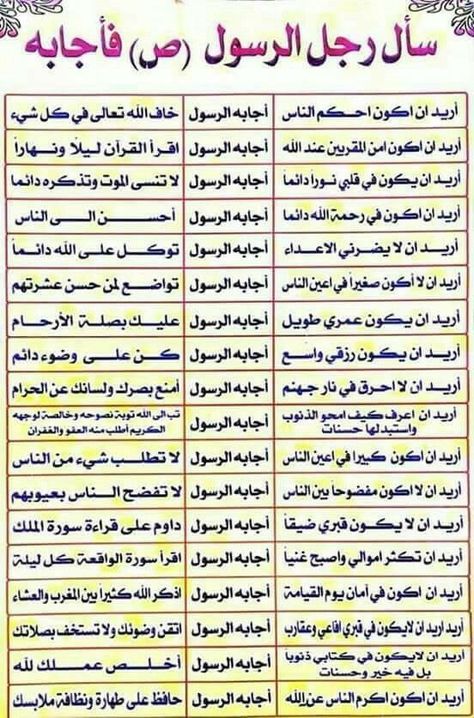 سأل رجل الرسول (ص) فأجابه
أريد ان اكون احكم الناس أجابه الرسول خاف الله تعالى في كل شيء
أريد ان اكون امن المقربين عند الله أجابه الرسول اقرأ القرآن ليلاً ونهاراً
أريد ان يكون في قلبي نوراً دائماً أجابه الرسول لا تنسى الموت وتذكره دائما
أريد ان اكون في رحمة الله دائما أجابه الرسول أحسن الى الناس
أريد ان لا يضرني الاعداء أجابه الرسول توكل على الله دائماً
أريد ان لا أكون صغيراً في اعين الناس أجابه الرسول تواضع لمن حسن عشرتهم
أريد ان يكون عمري طويل أجابه الرسول عليك بصلة الأرحام
أريد ان يكون رزقي واسع أجابه الرسول كن على وضوء دائم
أريد ان لا احرق في نار جهنم أجابه الرسول أمنع بصرك ولسانك عن الحرام
أريد ان اعرف كيف امحو الذنوب واستبدلها حسنات أجابه الرسول تب الى الله توبة نصوحه وخالصة لوجهه
الكريم أطلب منه العفو والغفران
أريد ان اكون كبيرا في اعين الناس أجابه الرسول لا تطلب شيء من الناس
أريد ان لا اكون مفضوحاً بين الناس أجابه الرسول لا تفضح الناس بعيوبهم
أريد ان لا يكون قبري ضيقاً أجابه الرسول داوم على قراءة سورة الملك
أريد ان تكثر اموالي واصبح غنياً أجابه الرسول اقرأ سورة الواقعة كل ليلة
أريد ان اكون في أمان يوم القيامة أجابه الرسول اذكر الله كثيراً بين المغرب والعشاء
أريد اريد ان لايكون في قبري افاعي وعقارب أجابه الرسول اتقن وضوئك ولا تستخف بصلاتك
أريد ان لايكون في كتابي ذنوباً بل فيه خير وحسنات أجابه الرسول أخلص عملك لله
أريد ان اكون اكرم الناس عن الله أجابه الرسول حافظ على طهارة ونظافة ملابسك